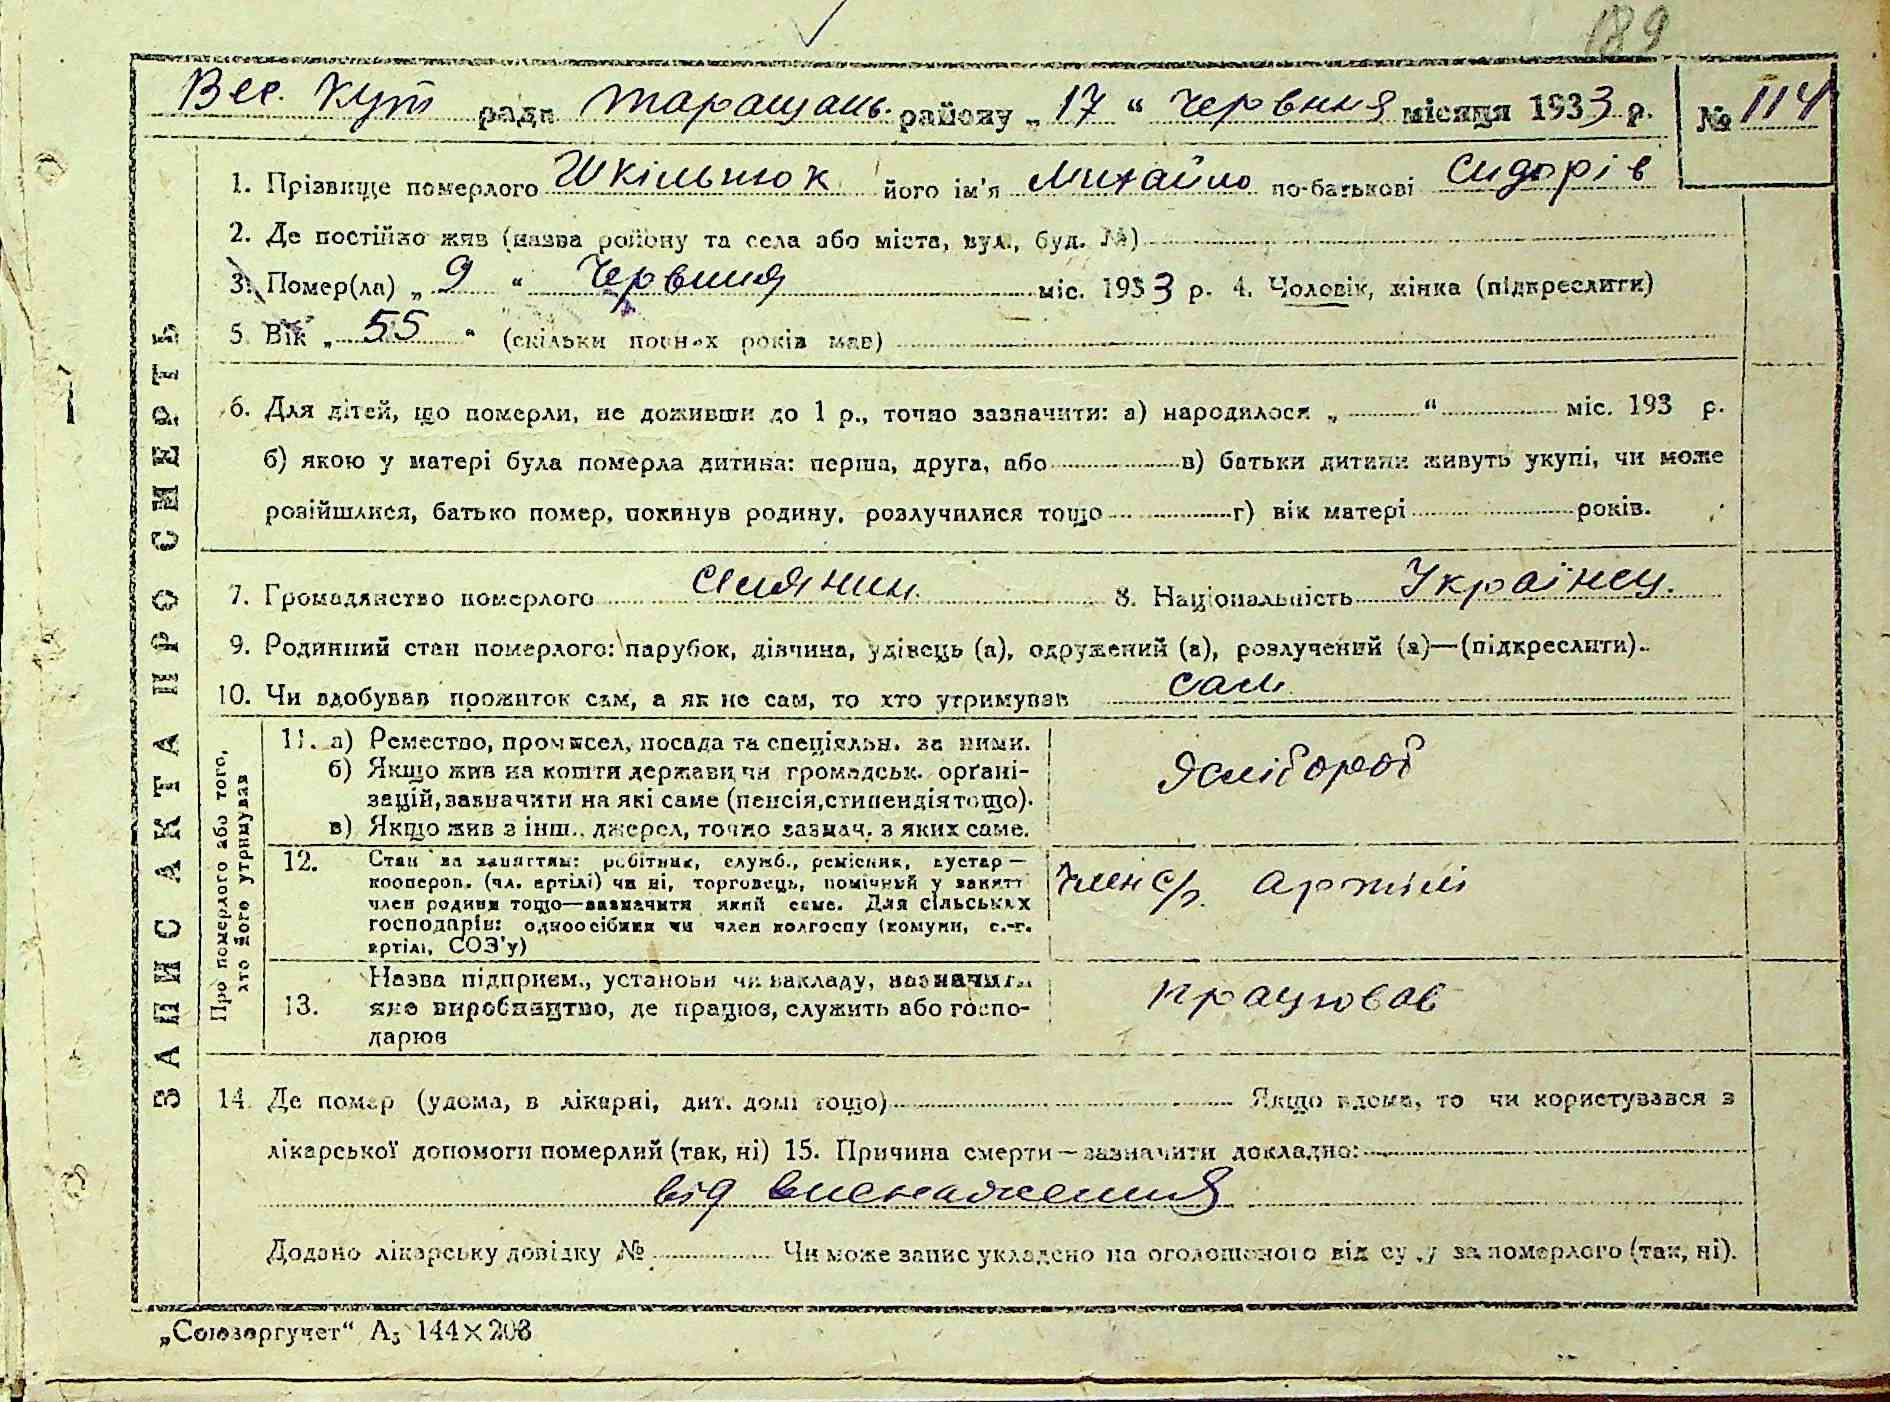 189
Вес. Кут рада Таращань. району „ 17 “ Червня місяця 1933 р. № 114
1. Прізвище померлого Шкільнюк його ім'я Михайло по-батькові Сидорів
2. Де постійно жив (назва району та села або міста, вул., буд. №)
3. Помер(ла) „ 9 “ Червня міс. 1933 р. 4. Чоловік, жінка (підкреслити)
5. Вік „ 55 “ (скільки повних років мав)
6. Для дітей, що померли, не доживши до 1 р., точно зазначити: а) народилося „ “ міс. 193 р.
б) якою у матері була померла дитина: перша, друга, або в) батьки дитини живуть укупі, чи може
розійшлися, батько помер, покинув родину, розлучилися тощо г) вік матері років.
7. Громадянство померлого 8. Національність Українец.
9. Родинний стан померлого: парубок, дівчина, удівець (а), одружений (а), розлучений (а)—(підкреслити).
10. Чи здобував прожиток сам, а як не сам, то хто утримував сам
Про померлого або того,
хто його утримував
11. а) Ремество, промисел, посада та спеціяльн. за ними.
б) Якщо жив на кошти держави чи громадськ. орґані-
зацій, зазначити на які саме (пенсія, стипендія тощо).
в) Якщо жив з інш. джерел, точно зазнач. з яких саме.
12. Стан за заняттям: робітник, служб., ремісник, кустар—
коопероп. (чл. артілі) чи ні, торговець, помічний у занятті
член родини тощо—зазначити який саме. Для сільських
господарів: одноосібник чи член колгоспу (комуни, с.-г.
артілі, СОЗ'у)
член с/г. артілі
13. Назва підприєм., установи чи закладу, зазначити
яке виробництво, де працюв, служить або госпо-
дарюв
працював
14. Де помер (удома, в лікарні, дит. домі тощо) Якщо вдома, то чи користувався з
лікарської допомоги померлий (так, ні) 15. Причина смерти—зазначити докладно:
від виснаження
Додано лікарську довідку № Чи може запис укладено на оголошеного від суду за померлого (так, ні).
ЗАПИС АКТА ПРО СМЕРТЬ
„Союзоргучет“ А5 144×203